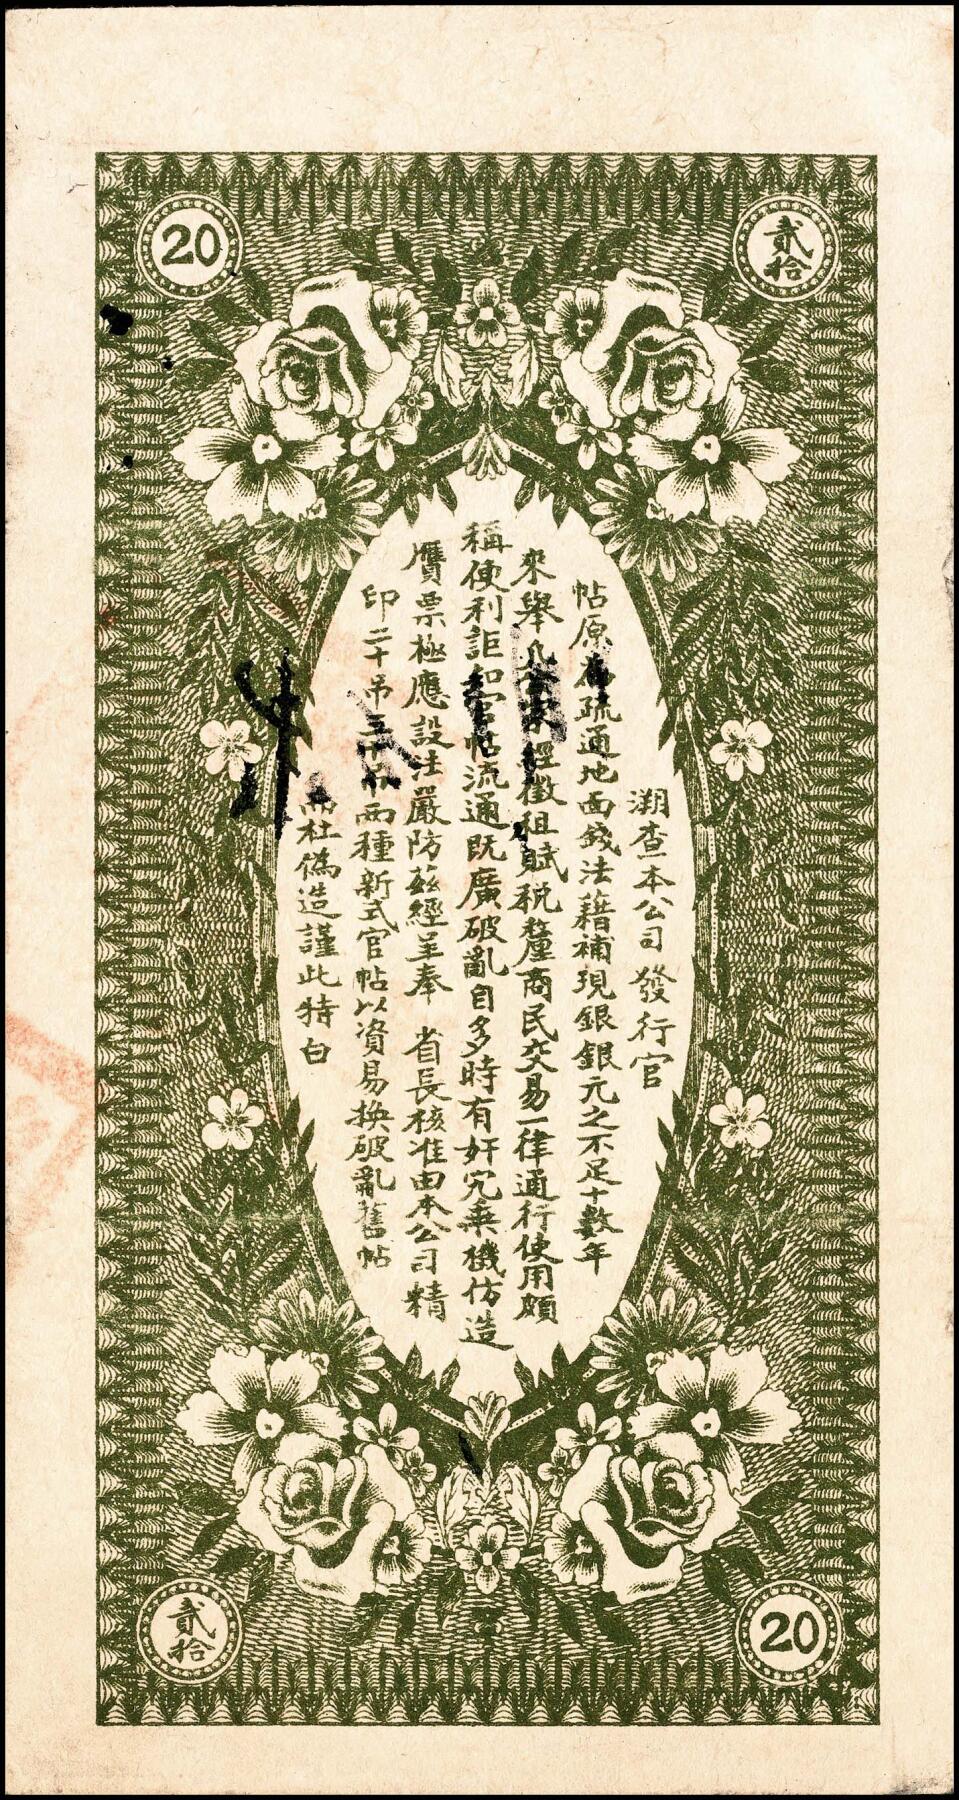 20
貳拾
溯查本公司發行官
帖原為疏通地面錢法藉補現銀銀元之不足十數年
來舉凡公家經徵租賦稅釐商民交易一律通行使用頗
稱便利詎知官帖流通既廣破亂自多時有奸宄乘機仿造
贗票極應設法嚴防茲經呈奉 省長核准由本公司精
印二十吊五十吊兩種新式官帖以資易換破亂舊帖
而杜偽造謹此特白
貳拾
20